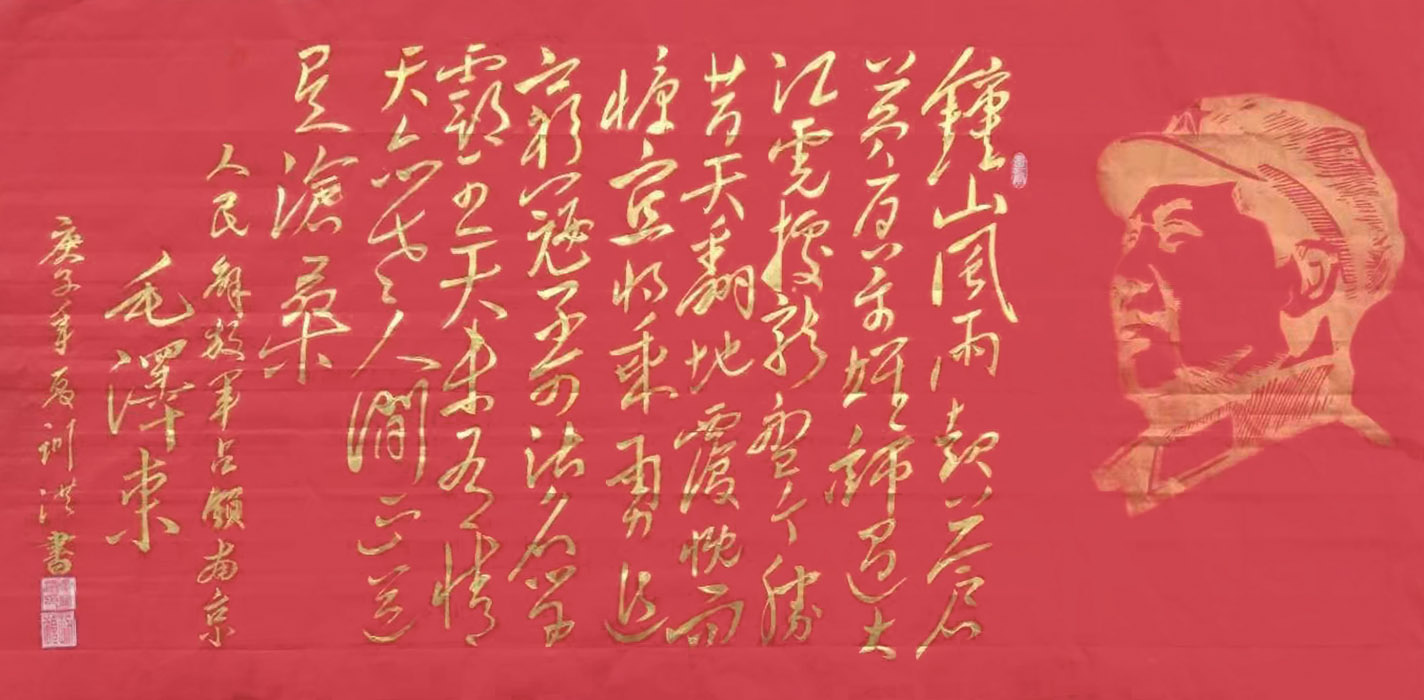 鍾山風雨起蒼
黃百万雄師過大
江虎據龍盤今勝
昔天翻地覆慨而
慷宜將乘勇追
窮寇不可沽名學
霸王天未有情
天亦老人間正道
是滄桑
人民解放軍占領南京
毛澤東
庚子年夏訓洪書